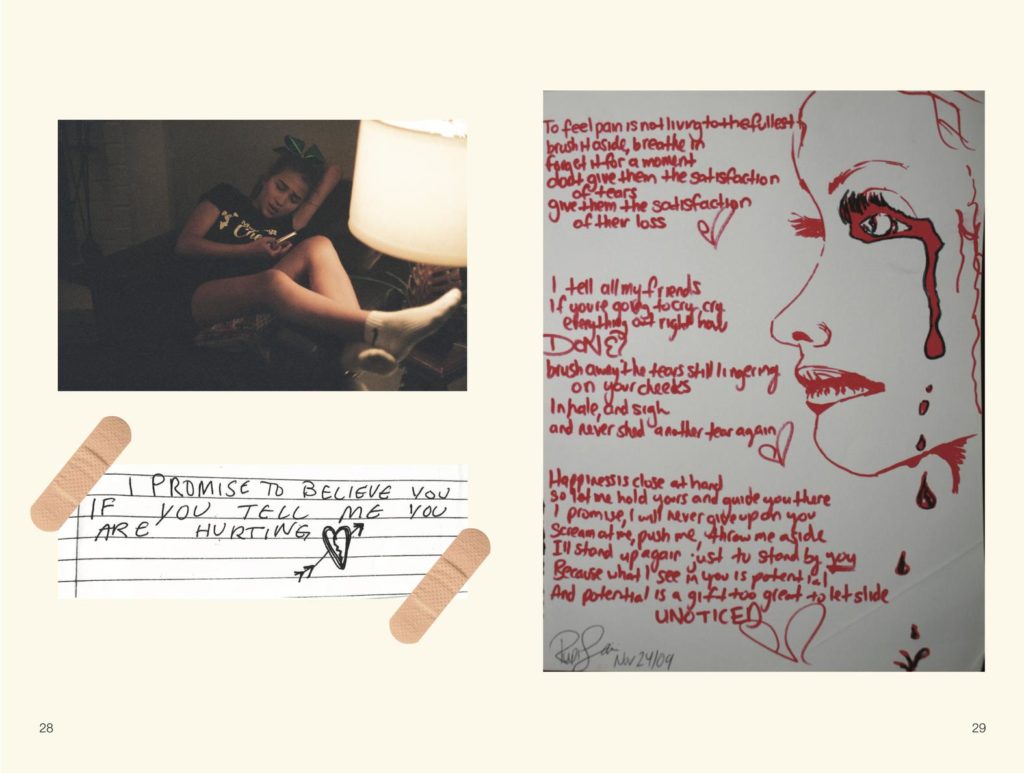 I PROMISE TO BELIEVE YOU
IF YOU TELL ME YOU
ARE HURTING
28
To feel pain is not living to the fullest
brush it aside, breathe in
forget it for a moment
don't give them the satisfaction
of tears
give them the satisfaction
of their loss
I tell all my friends
If you're going to cry, cry
everything out right now
DONE?
brush away the tears still lingering
on your cheeks
Inhale, and sigh
and never shed another tear again
Happiness is close at hand
so let me hold yours and guide you there
I promise, I will never give up on you
Scream at me, push me, throw me aside
I'll stand up again just to stand by you
Because what I see in you is potential
And potential is a gift too great to let slide
UNOTICED
Nov 24/09
29